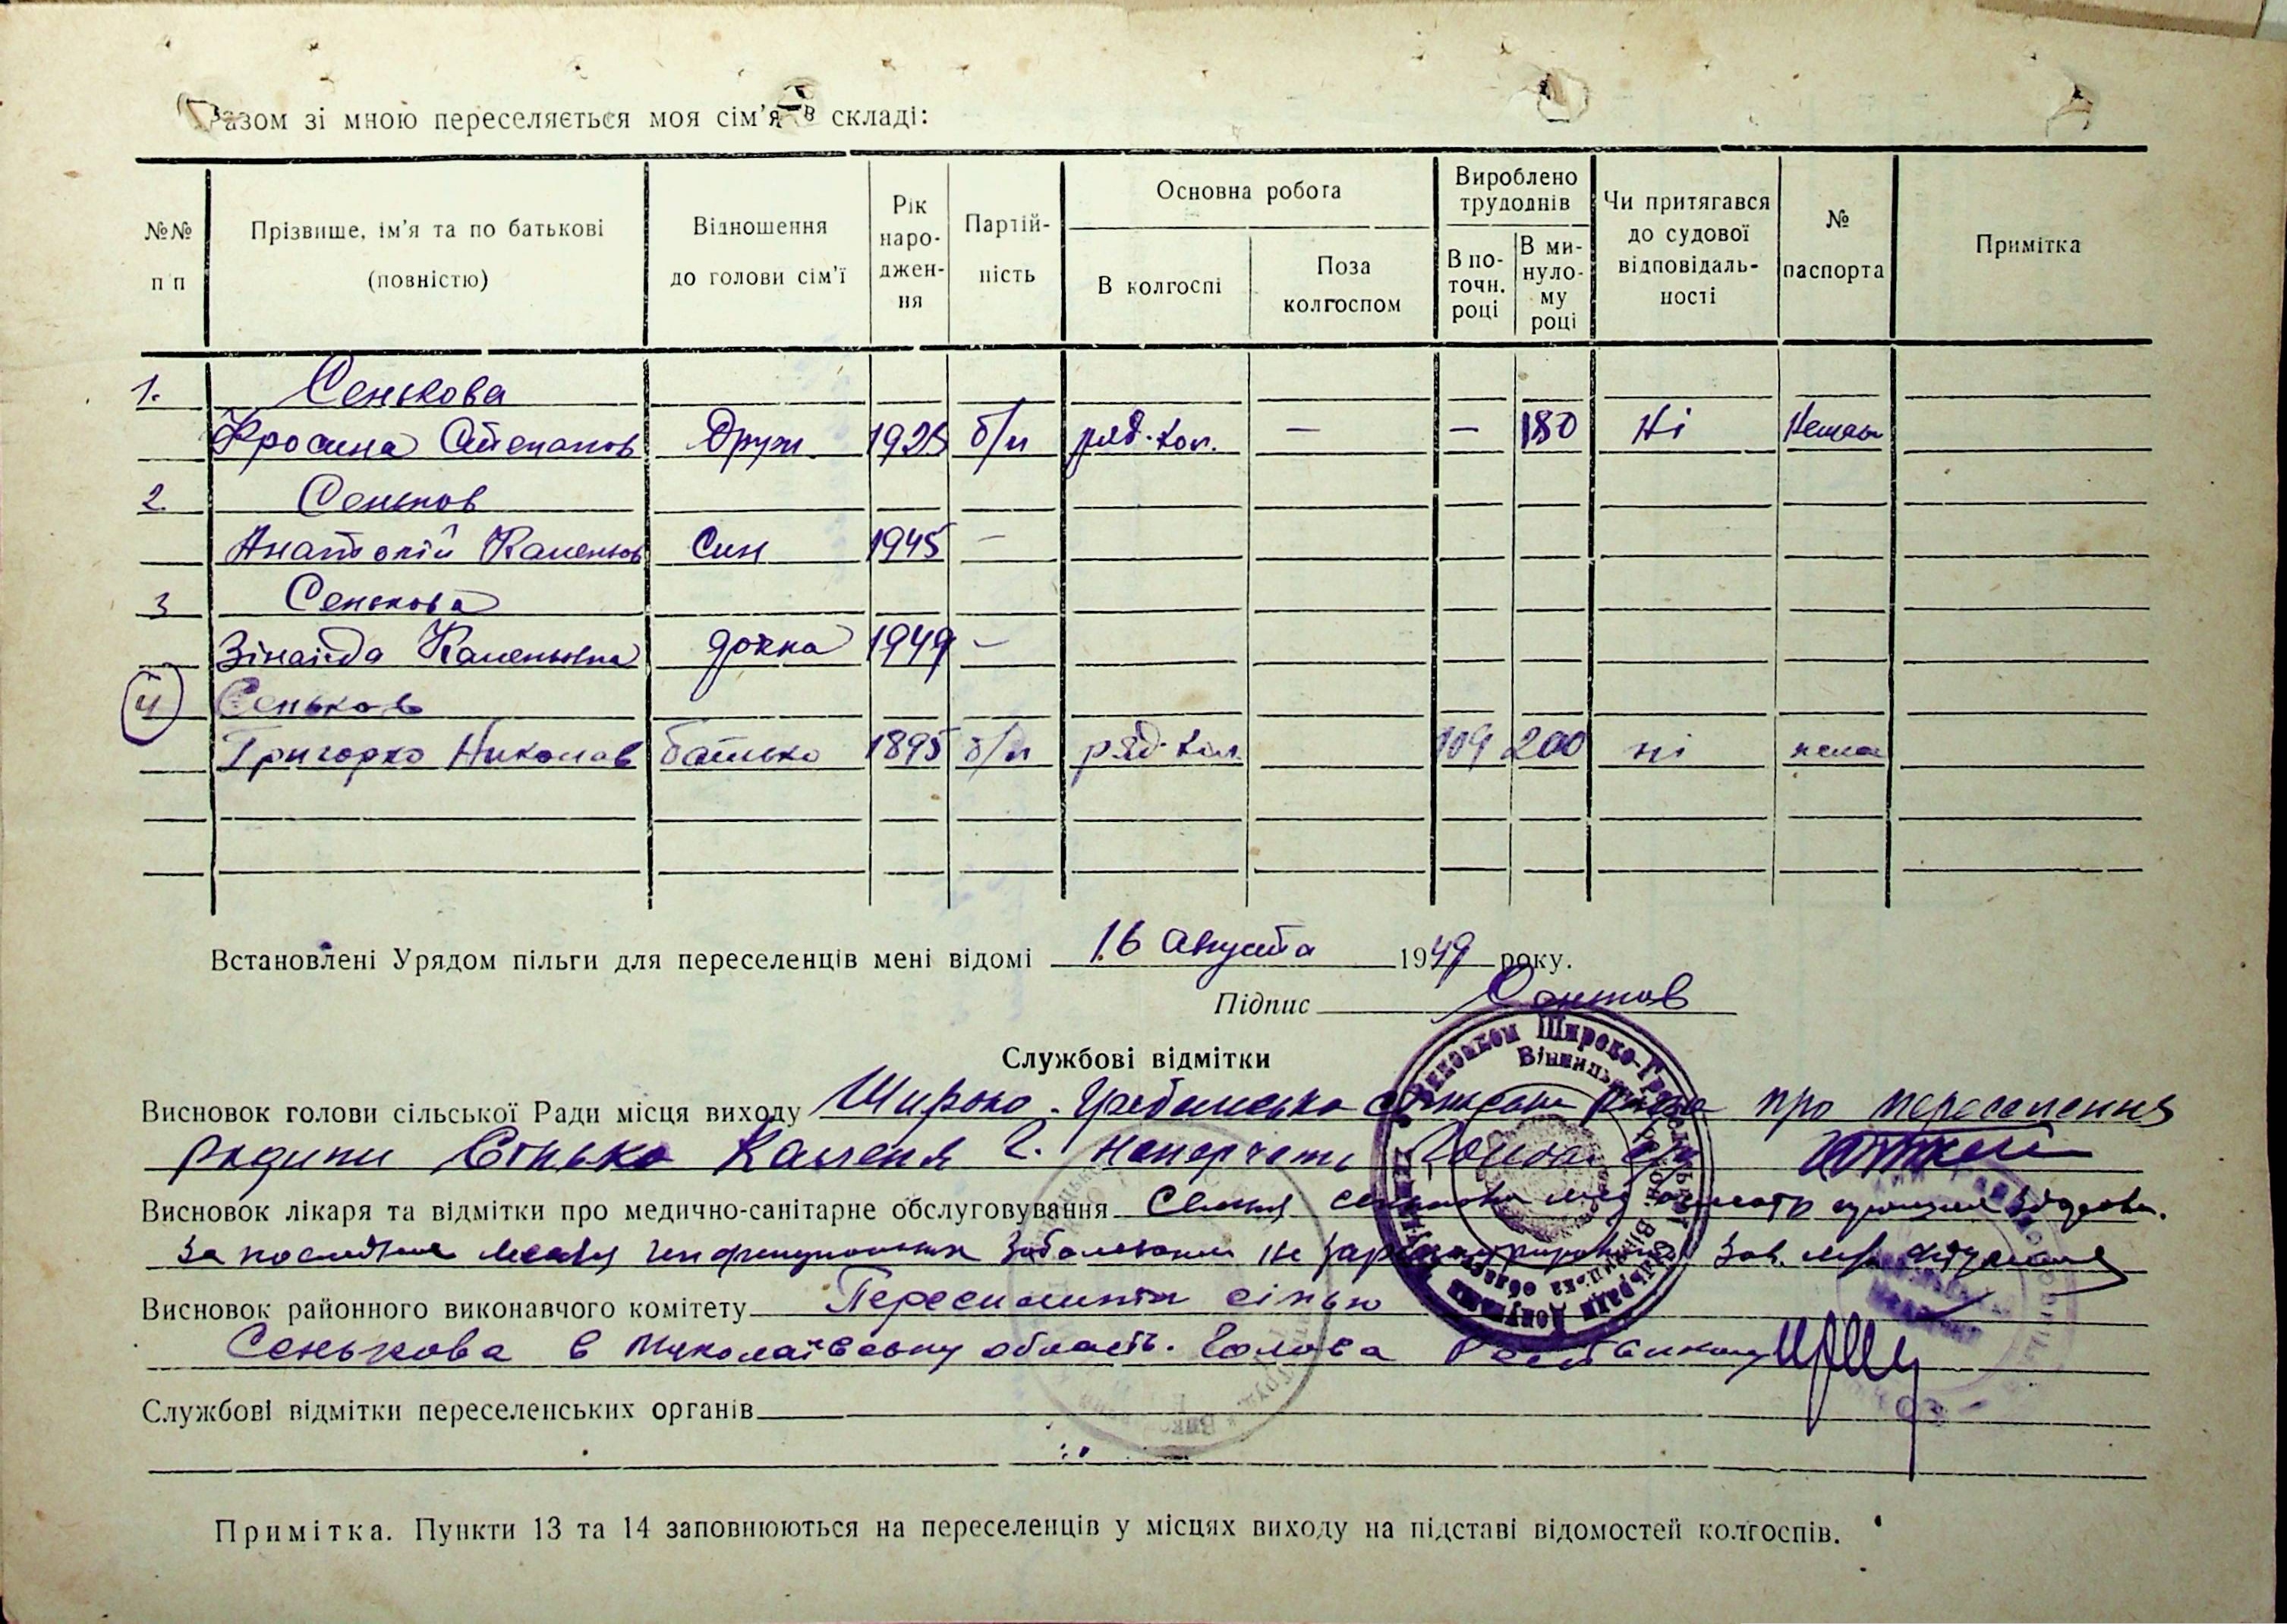 Разом зі мною переселяється моя сім'я в складі:
№№ п п
Прізвище, ім'я та по батькові (повністю)
Відношення до голови сім'ї
Рік народження
Партійність
Основна робота
В колгоспі
Поза колгоспом
Вироблено трудоднів
В поточн. році
В минулому році
Чи притягався до судової відповідальності
№ паспорта
Примітка
1. Сенькова
Фросина Степанов Друж. 1925 б/п ряд. кол. — — 180 Ні Немає
2. Сеньков
Анатолій Каленков Син 1945 —
3 Сенькова
Зінаїда Каленьовна дочка 1949 —
4 Сеньков
Григорко Николаев батько 1895 б/п ряд. кол. 109 200 ні нема
Встановлені Урядом пільги для переселенців мені відомі 16 Августа 1949 року.
Підпис
Службові відмітки
Висновок голови сільської Ради місця виходу Широко-Гребельська про переселення
родини Сінько Каленя Г. Голова
Висновок лікаря та відмітки про медично-санітарне обслуговування Семья
за последний месяц инфекционных заболеваний не зарегистрировано Зав.
Висновок районного виконавчого комітету Переселити сім'ю
Сенькова в Миколаївську область. Голова
Службові відмітки переселенських органів
Примітка. Пункти 13 та 14 заповнюються на переселенців у місцях виходу на підставі відомостей колгоспів.